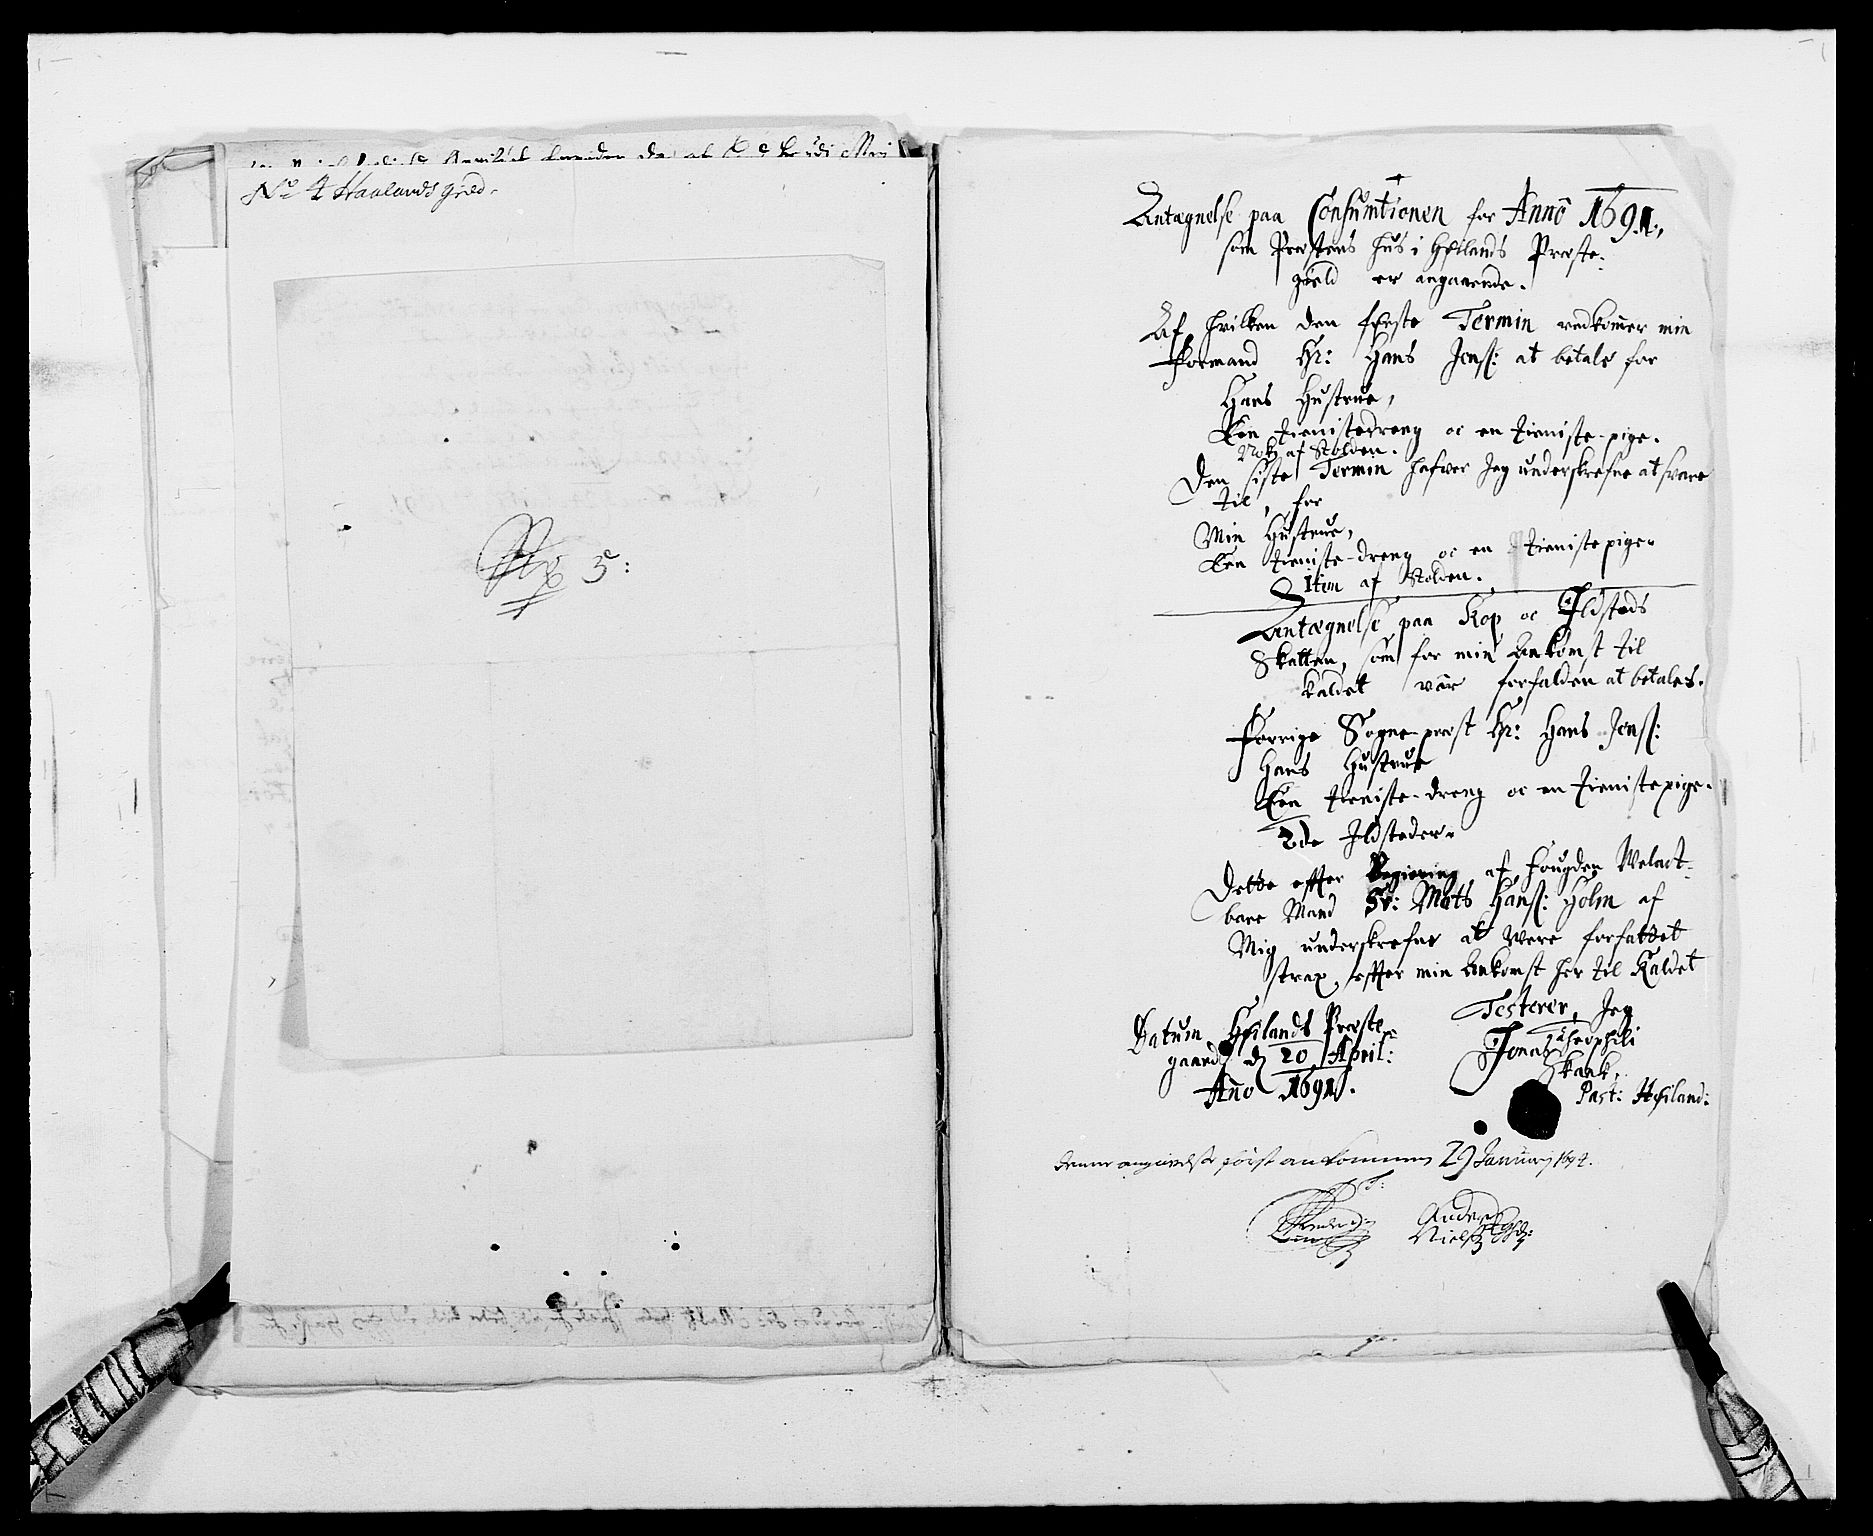 No 4 Haalands gield.
No 5:
Antægnelse paa Consumtionen for Anno 1691.,
som Præstens hus i Høilands Præste-
gield er angaaende.
Af hvilken den første Termin vedkommer min
Formand Hr: Hans Jenss: at betale for
Hans Hustrue,
Een tienistedreng oc en tieniste-pige.
Nok af Stolden.
Den siste Termin hafver Jeg underskrefne at svare
til, for
Min Hustrue,
Een tieniste-dreng oc en tienistepige.
Item af Stolden.
Antægnelse paa Kop oc Ildsteds
Skatten, som for min Ankomst til
kaldet var forfalden at betales.
Forrige Sogne-præst Hr: Hans Jenss:
Hans Hustrue
Een tieniste-dreng oc en tienistepige.
2de Ildsteder.
Dette effter Begiering af Fougden Welact-
bare Mand Sr: Mats Hanss: Holm af
Mig underskrefne at være forfattet
strax effter min Ankomst her til Kaldet
Testerer, Jeg
Datum Høilands Præste-
gaard d 20 April:
Anno 1691.
Jonas Theophili
Skank,
Past: Høiland:
Denne angivelse først ankommen 29 Januarij 1692.
Anders
Niels